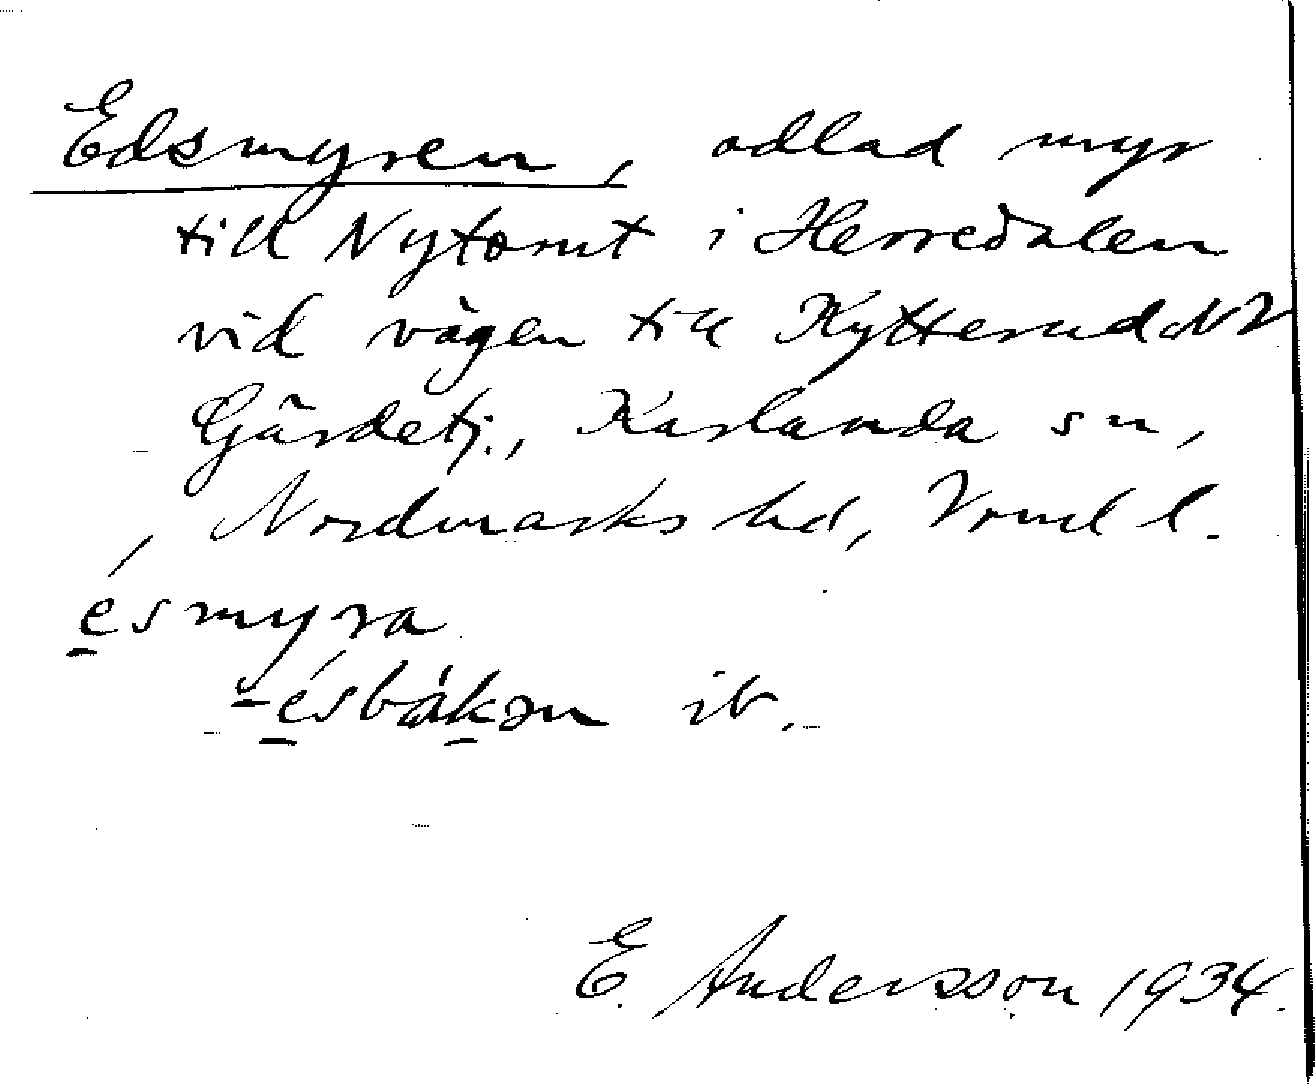 Edsmyren, odlad myr
till Nytomt i Herredalen
vid vägen till Kytterud NV
Gärdetj., Karlanda sn,
Nordmarks hd, Vrml l.
ésmyra
-ésbákən ib.
E. Andersson 1934.